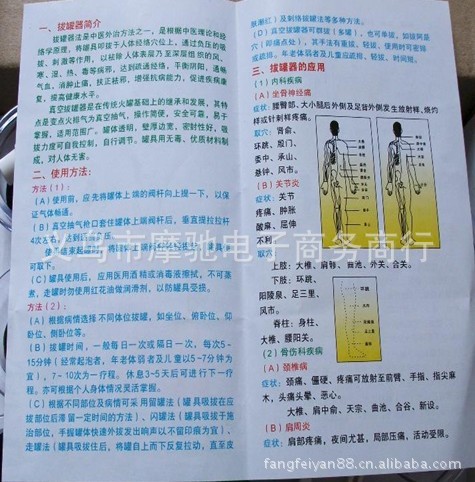 一、拔罐器简介
拔罐器法是中医外治方法之一，是根据中医理论和经
络学原理，将罐具叩拔于人体经络穴位上，通过负压的吸
拔、刺激等作用，以祛除人体表层乃至深层组织的风、
寒、湿、热、毒等病邪，达到疏通经络，平衡阴阳，通畅
气血，消肿止痛，扶正祛邪，增强抗病能力，促进疾病康
复，提高健康水平。
真空拔罐器是在传统火罐基础上的继承和发展，其特
点是变点火排气为真空抽气，操作简便，安全可靠，易于
掌握，适用范围广。罐体透明，壁厚边宽，密封性好，吸
拔力度可自我控制，自行调节。罐具用无毒、优质材料制
成，对人体无害。
二、使用方法：
方法（1）：
（A）使用前，应先将罐体上端的阀杆向上提一下，以保
证气体畅通。
（B）真空抽气枪口套住罐体上端阀杆后，垂直提拉拉杆
4次左右，达到
使用结束后
可取下。
（C）罐具使用后，应用医用酒精或消毒液擦拭，不可蒸
煮，走罐时勿使用红花油做润滑剂，以防罐具受损。
方法（2）：
（A）根据病情选择不同体位拔罐，如坐位、俯卧位、仰
卧位、侧卧位等。
（B）拔罐时间，一般每日一次或隔日一次，每次5-
15分钟（经常起泡者，年老体弱者及儿童以5-7分钟为
宜），7-10次为一疗程。休息3-5天后可进行下一疗
程。亦可根据个人身体情况灵活掌握。
（C）根据不同部位及病情可采用留罐法（罐具吸拔在应
拔部位后滞留一定时间的方法）、闪罐法（罐具吸拔于施
治部位，手握罐体快速外拔发出响声以不留印痕为宜）、
走罐法（罐具吸拔住后，将罐自上而下反复拉动，直至皮
肤潮红）及刺络拔罐法等多种方法。
（D）真空拔罐器可群拔（多罐），也可单拔，如拔阿是
穴（即痛点处），其手法有重拔、轻拔，使用时可密排
或疏排。年老体弱者及儿童应疏排、轻拔。
三、拔罐器的应用
（1）内科疾病
（A）坐骨神经痛
症状：腰臀部、大小腿后外侧及足背外侧发生放射样、烧灼
样或针刺样疼痛。
取穴：肾俞、
环跳、殷门、
委中、承山、
悬钟、风市。
（B）关节炎
症状：关节
疼痛、肿胀
酸麻、屈伸
不利
上肢：大椎、肩髃、曲池、外关、合关。
下肢：环跳、
阳陵泉、足三里、
风市。
脊柱：身柱、
大椎、腰阳关。
（2）骨伤科疾病
（A）颈椎病
症状：颈痛、僵硬、疼痛可放射至前臂、手指、指尖麻
木，头痛头晕、恶心。
大椎、肩中俞、天宗、曲池、合谷、新设。
（B）肩周炎
症状：肩部疼痛，夜间尤甚，局部压痛，活动受限。
义乌市摩驰电子商务商行
fangfeiyan88.cn.alibaba.com